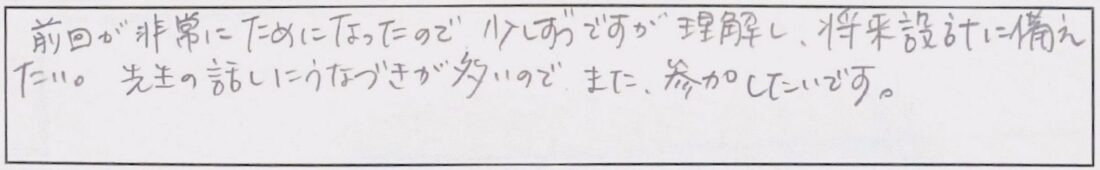 前回が非常にためになったので少しずつですが理解し、将来設計に備え
たい。先生の話しにうなづきが多いので、また、参加したいです。